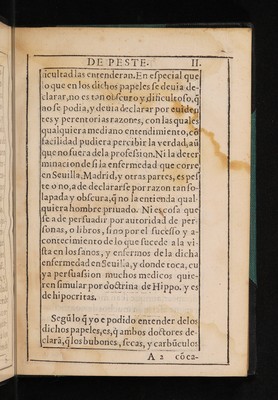 DE PESTE. II.
ficultad las entenderan. En especial que
lo que en los dichos papeles se deuia de-
clarar, no es tan obscuro y dificultoso, q̃
no se podia, y deuia declarar por euiden
tes y perentorias razones, con las quales
qualquiera mediano entendimiento, cõ
facilidad pudiera percibir la verdad, aũ
que no fuera de la profession. Ni la deter
minacion de si la enfermedad que corre
en Seuilla, Madrid, y otras partes, es pes
te o no, a de declararse por razon tan so-
lapada y obscura, q̃ no la entienda qual-
quiera hombre priuado. Ni es cosa que
se a de persuadir por autoridad de per-
sonas, o libros, sino por el sucesso y a-
contecimiento de lo que sucede a la vi-
sta en los sanos, y enfermos de la dicha
enfermedad en Seuilla, y donde toca, cu
ya persuasion muchos medicos quie-
ren simular por doctrina de Hippo. y es
de hipocritas.
Segũ lo q̃ yo e podido entender de los
dichos papeles, es, q̃ ambos doctores de-
clarã, q̃ los bubones, secas, y carbũculos
A 2 cõca-